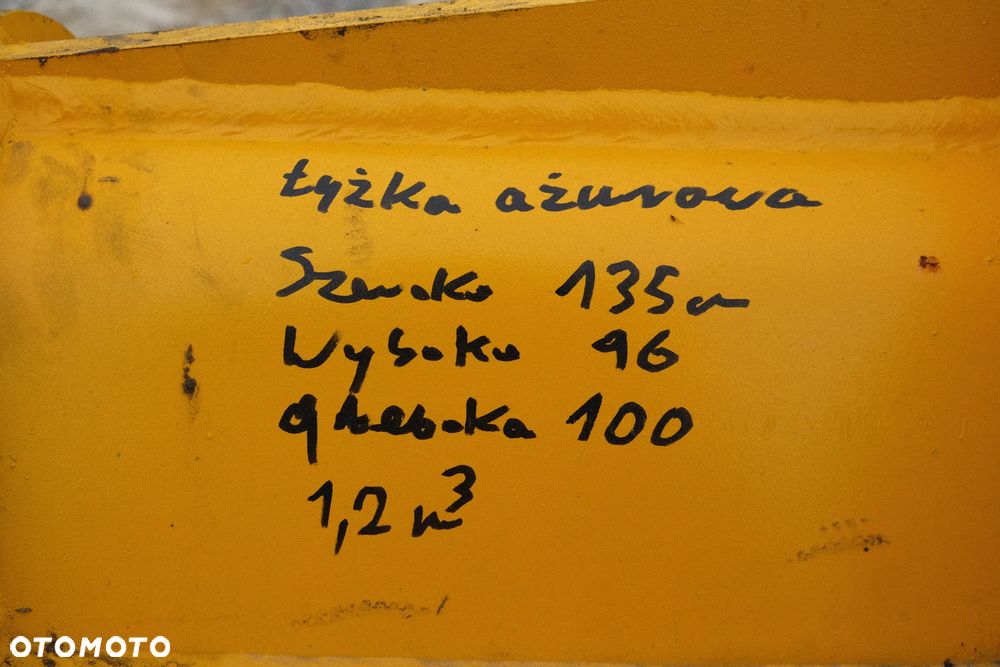 Łyżka ażurowa
Szeroka 135cm
Wysoka 96
głęboka 100
1,2 m³
OTOMOTO